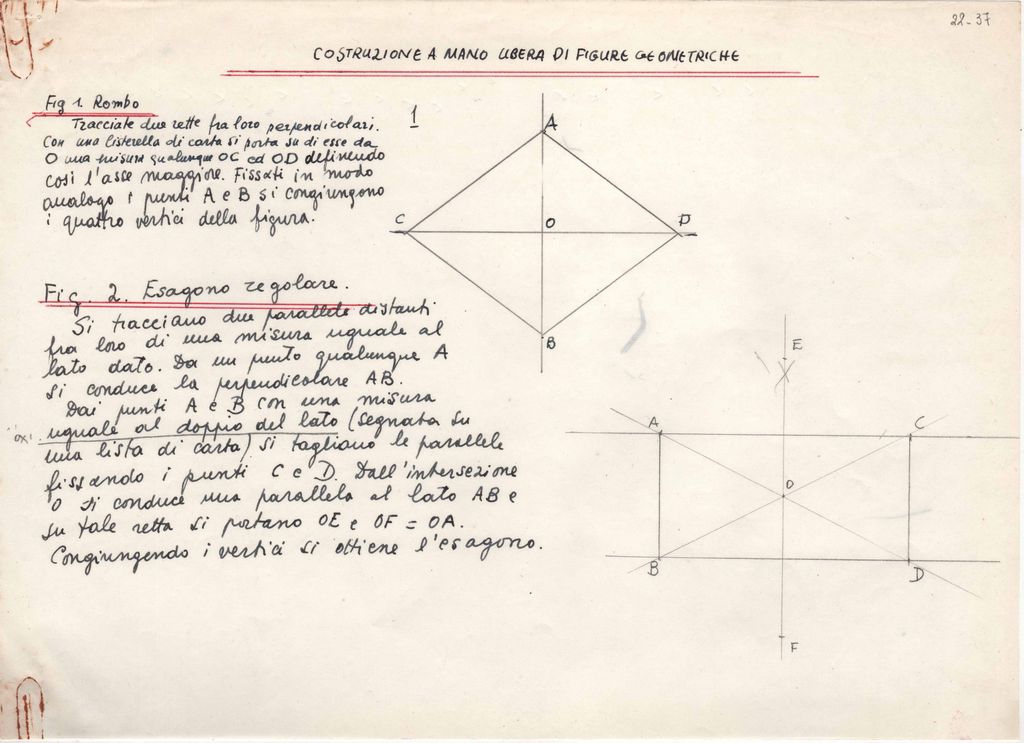 22-37
COSTRUZIONE A MANO LIBERA DI FIGURE GEOMETRICHE
Fig 1. Rombo
Tracciate due rette fra loro perpendicolari.
Con una listerella di carta si porta su di esse da
O una misura qualunque OC ed OD definendo
così l'asse maggiore. Fissati in modo
analogo i punti A e B si congiungono
i quattro vertici della figura.
1
A
C
O
D
B
Fig. 2. Esagono regolare.
Si tracciano due parallele distanti
fra loro di una misura uguale al
lato dato. Da un punto qualunque A
si conduce la perpendicolare AB.
Dai punti A e B con una misura
uguale al doppio del lato (segnata su
una lista di carta) si tagliano le parallele
fissando i punti C e D. Dall'intersezione
O si conduce una parallela al lato AB e
su tale retta si portano OE e OF = OA.
Congiungendo i vertici si ottiene l'esagono.
E
A
C
O
B
D
F